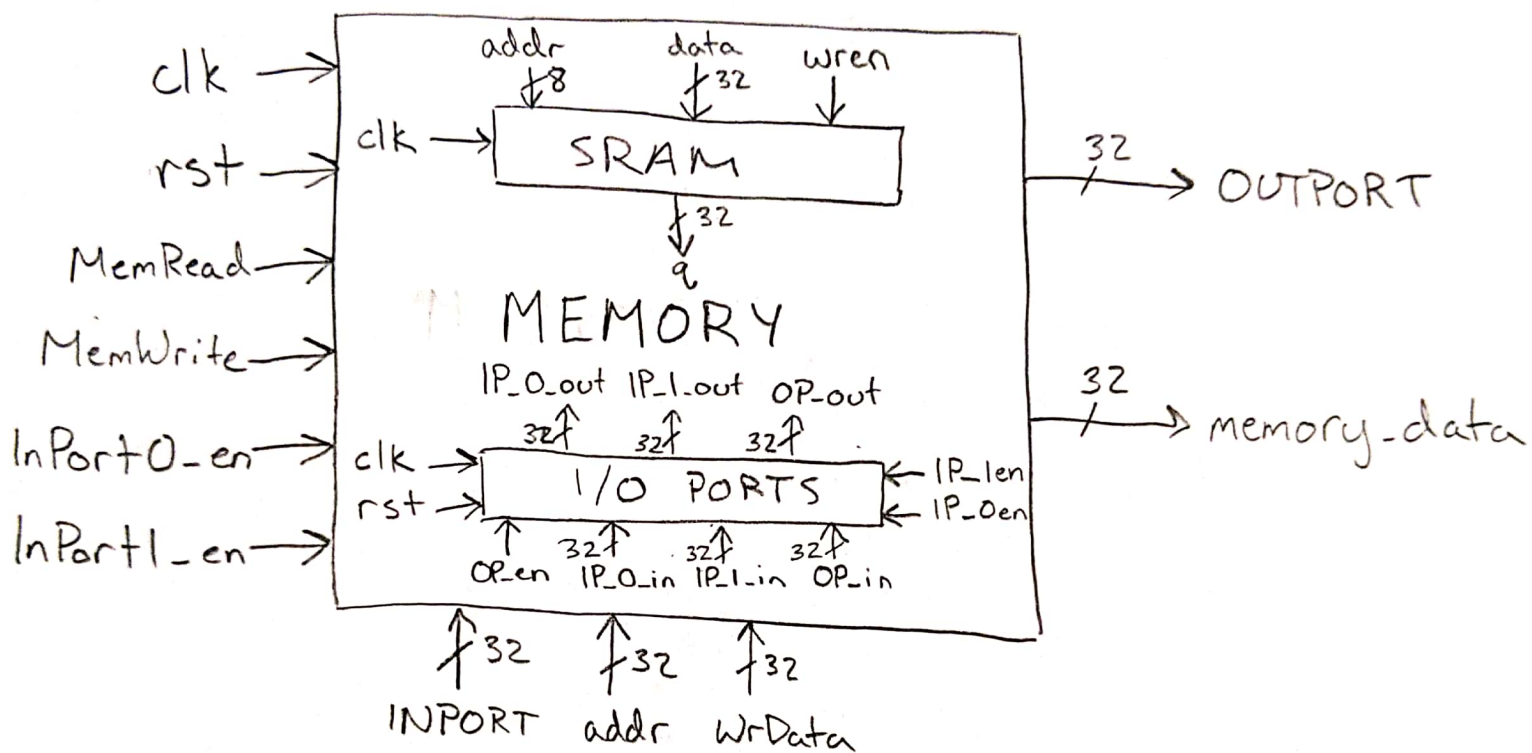 clk
rst
MemRead
MemWrite
InPort0_en
InPort1_en
addr
8
data
32
wren
clk
SRAM
32
q
MEMORY
IP_0_out
IP_1_out
OP_out
32
32
32
clk
rst
I/O PORTS
IP_1en
IP_0en
32
32
32
OP_en
IP_0_in
IP_1_in
OP_in
32
OUTPORT
32
memory_data
32
32
32
INPORT
addr
WrData